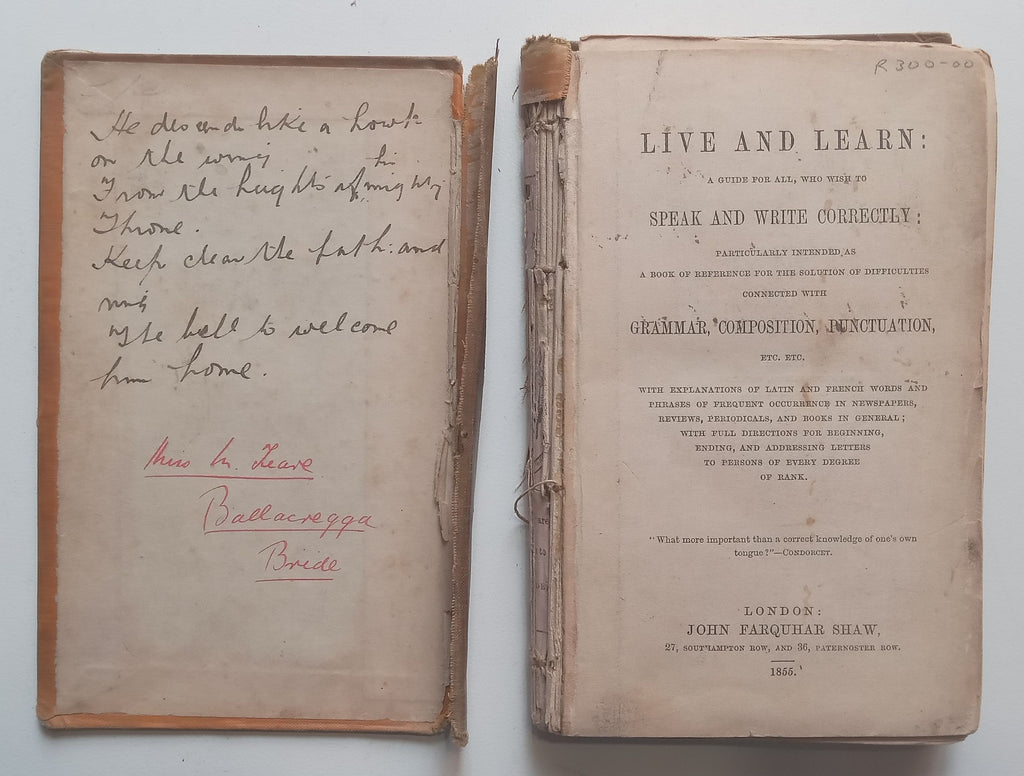 He descends like a hawk
on the wing
From the heights of his mighty
Throne.
Keep clear the path: and
ring
Yle bell to welcome
him home.
Miss M. Teare
Ballacregga
Bride
R300-00
LIVE AND LEARN:
A GUIDE FOR ALL, WHO WISH TO
SPEAK AND WRITE CORRECTLY:
PARTICULARLY INTENDED AS
A BOOK OF REFERENCE FOR THE SOLUTION OF DIFFICULTIES
CONNECTED WITH
GRAMMAR, COMPOSITION, PUNCTUATION,
ETC. ETC.
WITH EXPLANATIONS OF LATIN AND FRENCH WORDS AND
PHRASES OF FREQUENT OCCURRENCE IN NEWSPAPERS,
REVIEWS, PERIODICALS, AND BOOKS IN GENERAL;
WITH FULL DIRECTIONS FOR BEGINNING,
ENDING, AND ADDRESSING LETTERS
TO PERSONS OF EVERY DEGREE
OF RANK.
"What more important than a correct knowledge of one's own
tongue?"—CONDORCET.
LONDON:
JOHN FARQUHAR SHAW,
27, SOUTHAMPTON ROW, AND 36, PATERNOSTER ROW.
1855.